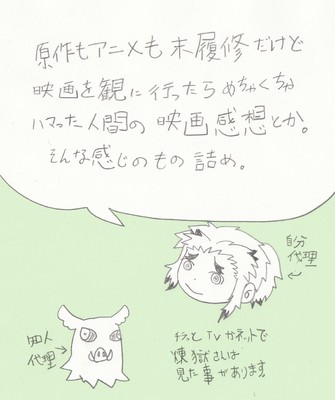 原作もアニメも未履修だけど
映画を観に行ったらめちゃくちゃ
ハマった人間の映画感想とか。
そんな感じのもの詰め。
自分
代理
知人
代理
チラッとTVかネットで
煉獄さんは
見た事があります